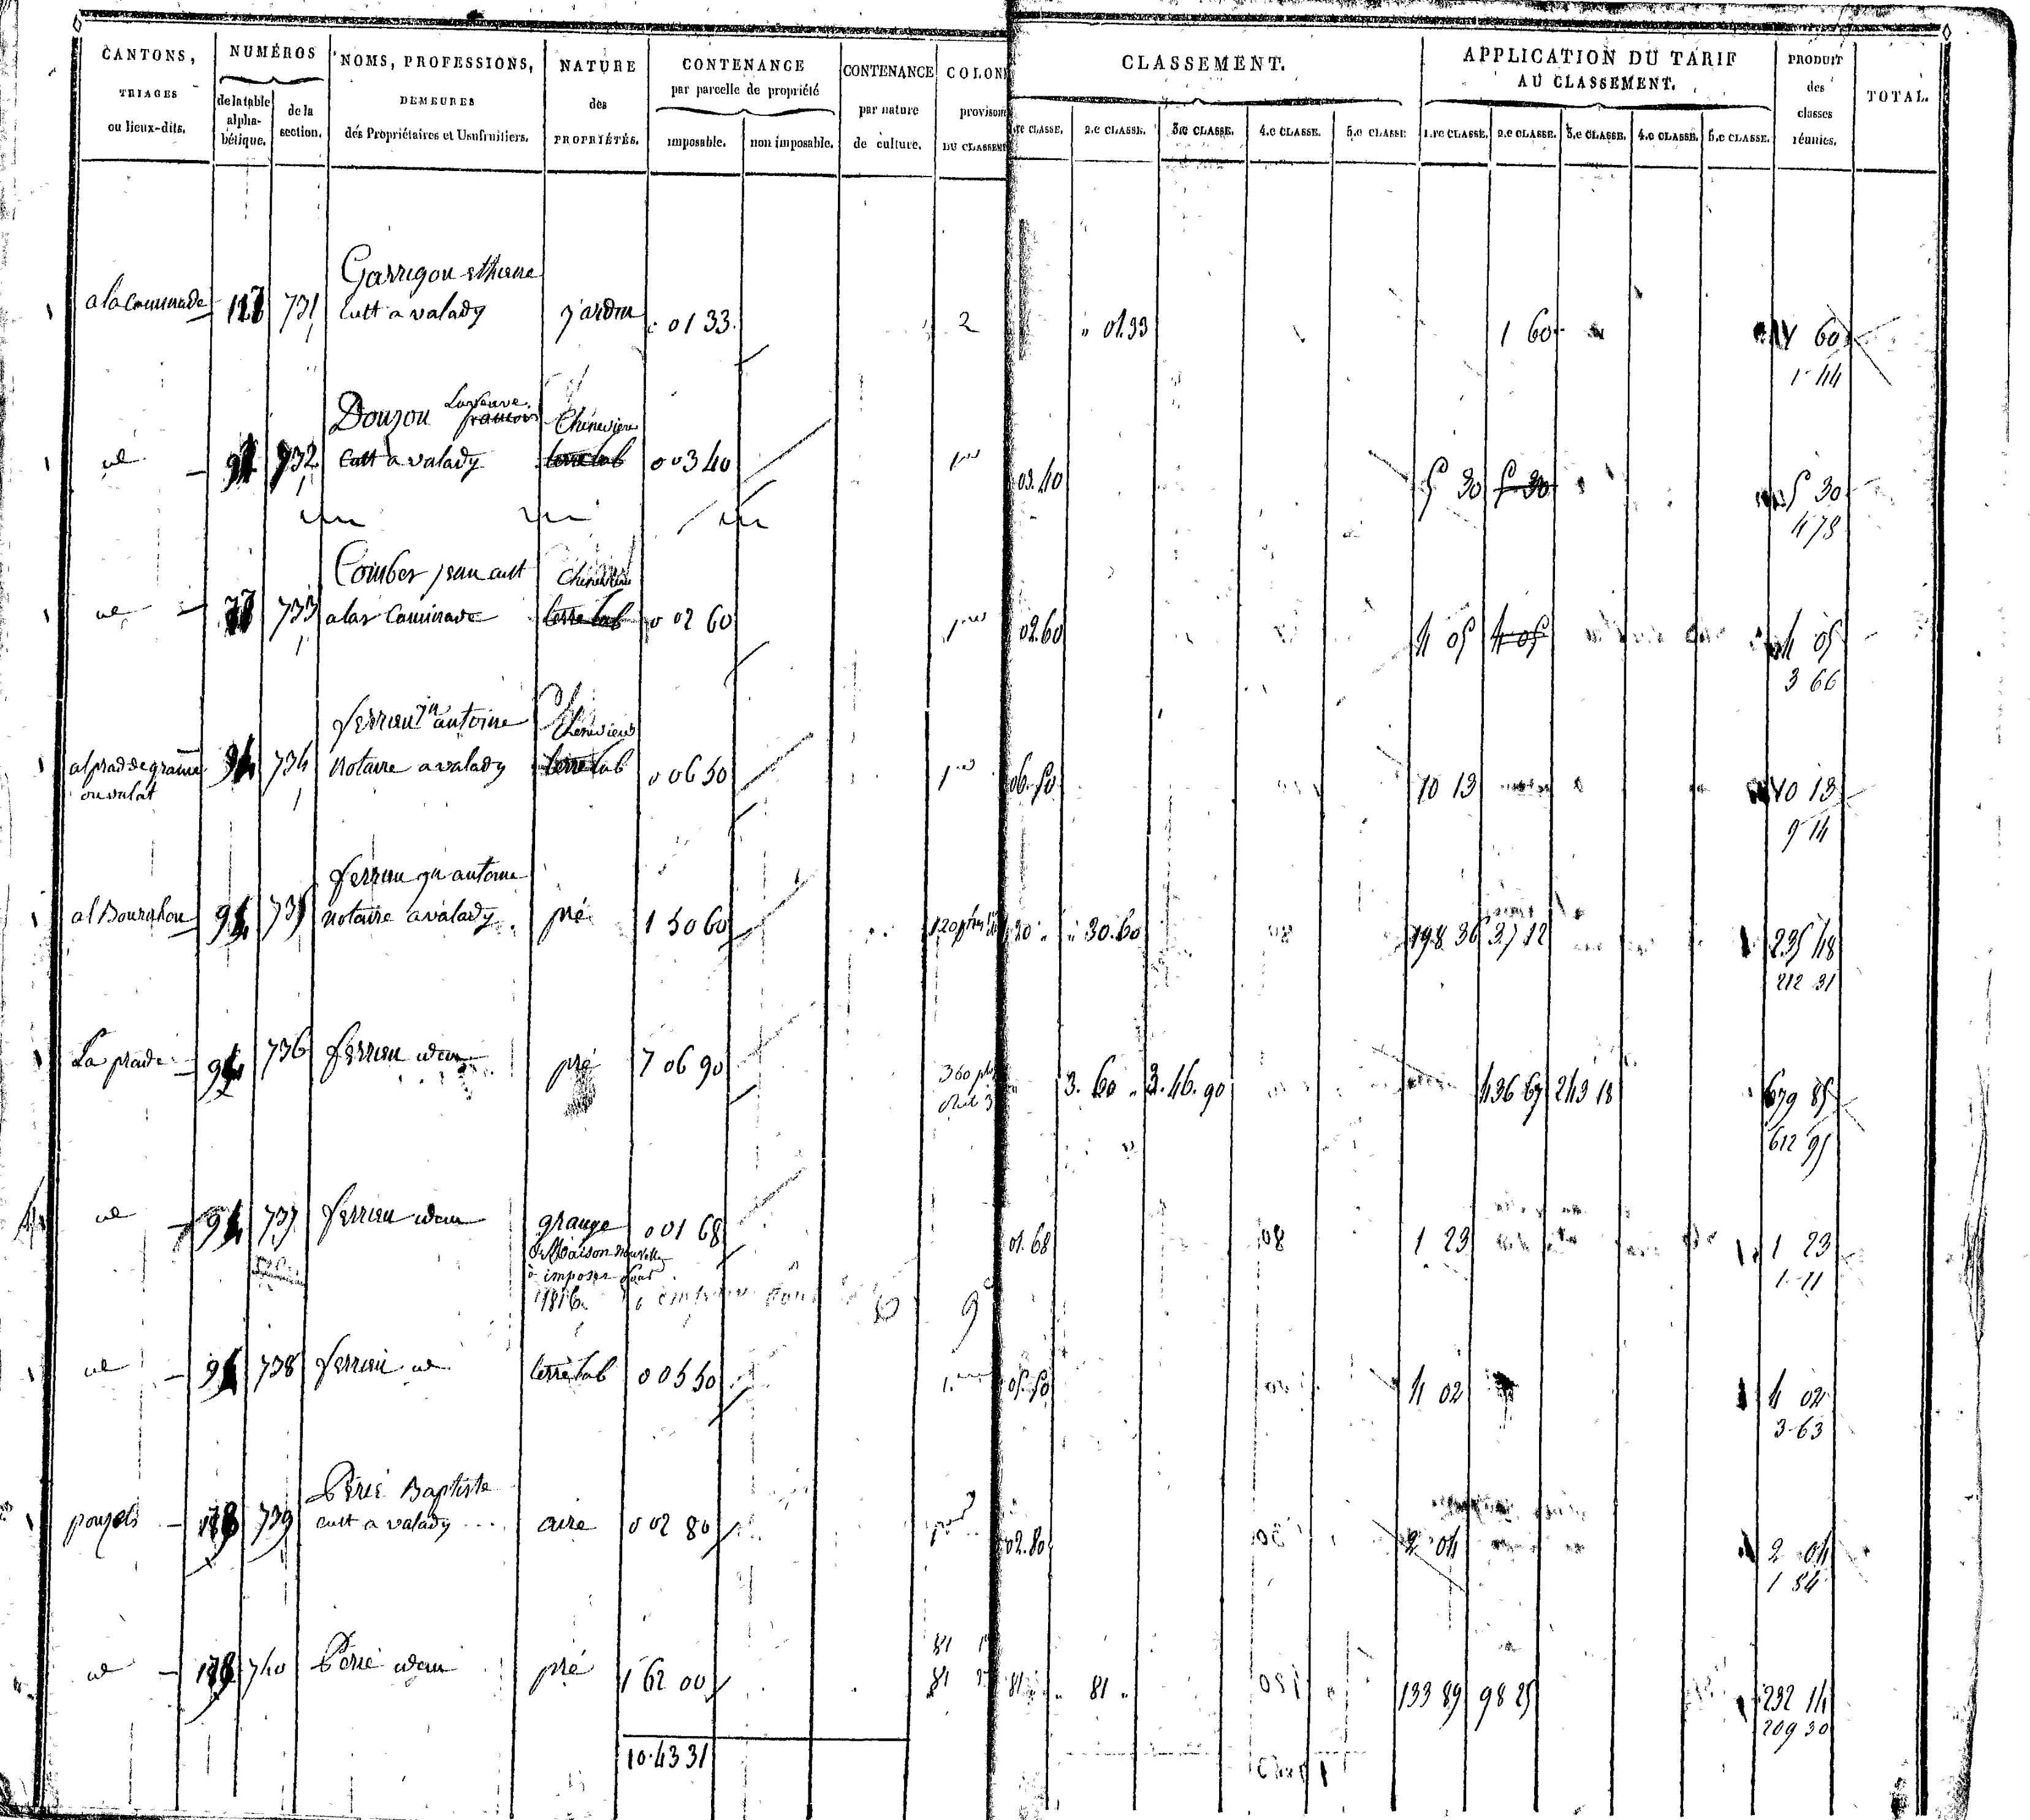 CANTONS, TRIAGES ou lieux-dits. | NUMÉROS de la table alphabétique. | de la section. | NOMS, PROFESSIONS, DEMEURES dés Propriétaires et Usufruitiers. | NATURE des PROPRIÉTÉS. | CONTENANCE par parcelle de propriété imposable. | non imposable. | CONTENANCE par nature de culture. | COLONN provisoire DU CLASSEME
CLASSEMENT. | 1.re CLASSE. | 2.e CLASSE. | 3.e CLASSE. | 4.e CLASSE. | 5.e CLASSE. | APPLICATION DU TARIF AU CLASSEMENT. | 1.re CLASSE. | 2.e CLASSE. | 3.e CLASSE. | 4.e CLASSE. | 5.e CLASSE. | PRODUIT des classes réunies. | TOTAL.
Garrigou ethiene
a la Caminade 731 cult a valady jardin 01 33 2 " 01.33 1 60 60
1 44
Douzou La veuve francois Chenevière
id 732 cult a valady terre lab 0 03 40 1re 03.40 5 30 5 30 5 30
4 78
Combes jean cult Cheneviere
id 733 a las Caminade terre lab 0 02 60 1re 02.60 4 05 4 05 4 05
3 66
ferrieu jn antoine Cheneviere
al prad de grane 94 734 notaire a valady terre lab 0 06 50 1re 06.50 10 13 10 13
ou valat 9 14
ferrieu jn antoine
al Bournhou 94 735 notaire a valady pré 1 50 60 120 " 30.60 198 36 37 12 235 48
212 31
La prade 94 736 ferrieu idem pré 7 06 90 360 3. 60 " 3.46.90 436 67 243 18 679 85
612 95
id 94 737 ferrieu idem grange 0 01 68 01.68 1 23 1 23
Maison nouvelle 1 11
à imposer pour
1816
id 94 738 ferrieu id terre lab 0 05 50 1re 05.50 4 02 4 02
3 63
Périé Baptiste
pouzels 739 cult a valady aire 0 02 80 02.80 2 04 2 04
1 84
id 740 Périé idem pré 1 62 00 81 81 81 " 81 " 133 89 98 25 232 14
209 30
10.43 31